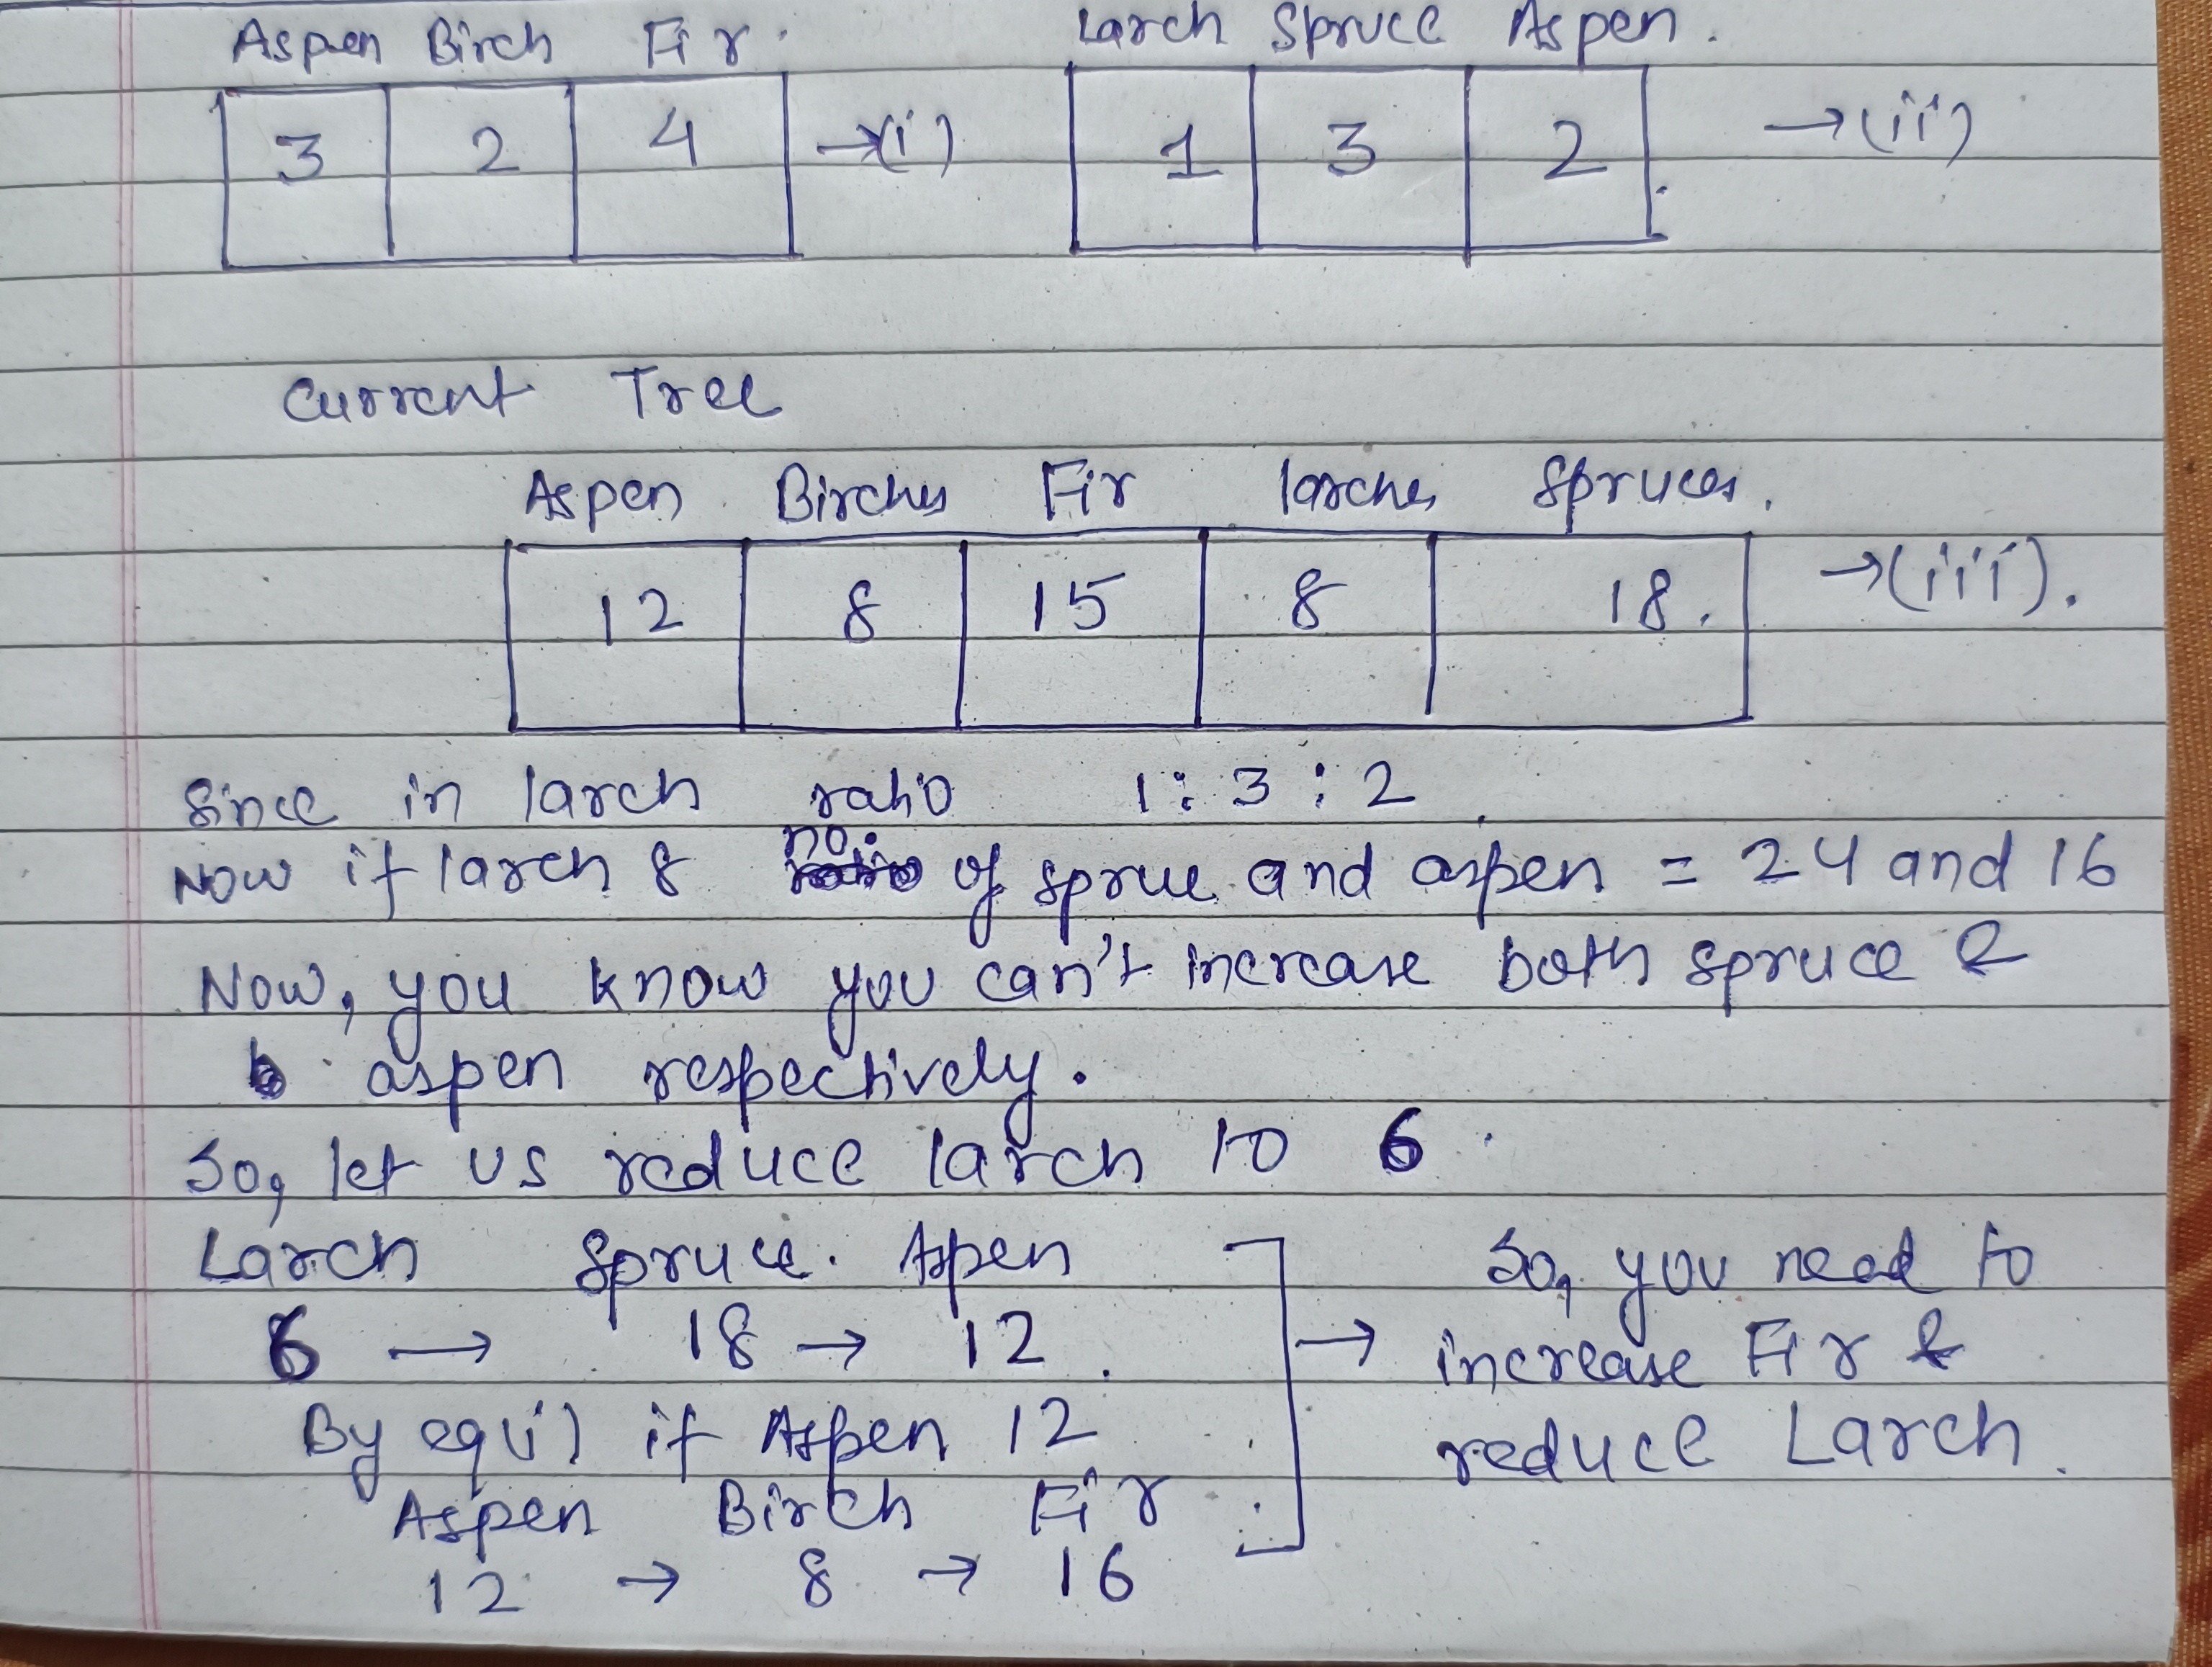 Aspen Birch Fir. Larch Spruce Aspen.
3 2 4 →(i) 1 3 2 →(ii)
Current Tree
Aspen Birches Fir larches Spruces.
12 8 15 8 18. →(iii).
Since in larch ratio 1:3:2.
Now if larch 8 no. of sprue and aspen = 24 and 16
Now, you know you can't increase both spruce &
aspen respectively.
So, let us reduce larch to 6.
Larch Spruce. Aspen
6 → 18 → 12.
By equi) if Aspen 12
Aspen Birch Fir
12 → 8 → 16
→ So, you need to
increase Fir &
reduce Larch.